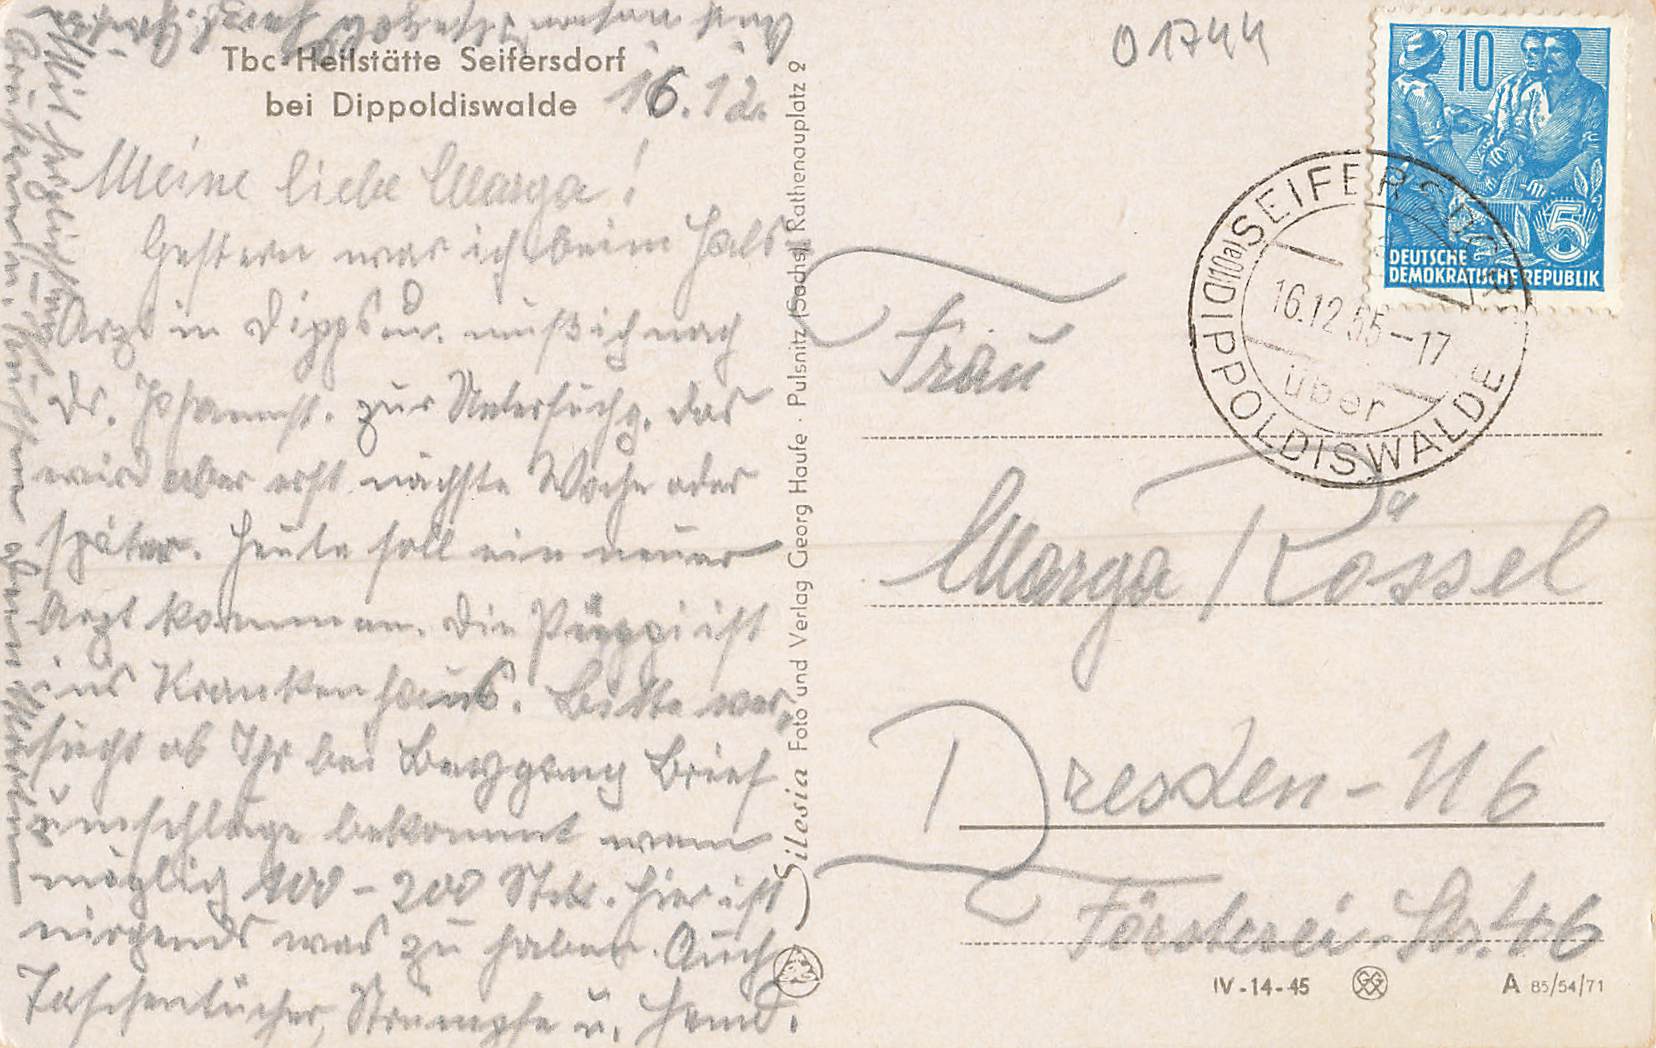 Tbc-Heilstätte Seifersdorf
bei Dippoldiswalde
16.12.
Meine liebe Marga!
Gestern war ich beim Hals-
Arzt in Dipps u. muß ich nach
Dr. zur Untersuchg. das
wird aber erst nächste Woche oder
später. Heute soll ein neuer
Arzt kommen. Die ist
ins Krankenhaus. Bitte ver-
sucht ob Ihr bei Brief
umschläge bekommt wenn
möglich 100-200 Stck. Hier ist
nirgends was zu haben. Auch
Taschentücher, Strümpfe u. Hemd.
Mit herzlichsten
Grüßen u.
Silesia Foto und Verlag Georg Haufe · Pulsnitz (Sachs) Rathenauplatz 2
01744
10
5
DEUTSCHE
DEMOKRATISCHE REPUBLIK
SEIFERSDORF
(10a) DIPPOLDISWALDE
16.12.55-17
über
Frau
Marga Kössel
Dresden-N 6
Försterei-Str. 46
IV-14-45
A 85/54/71